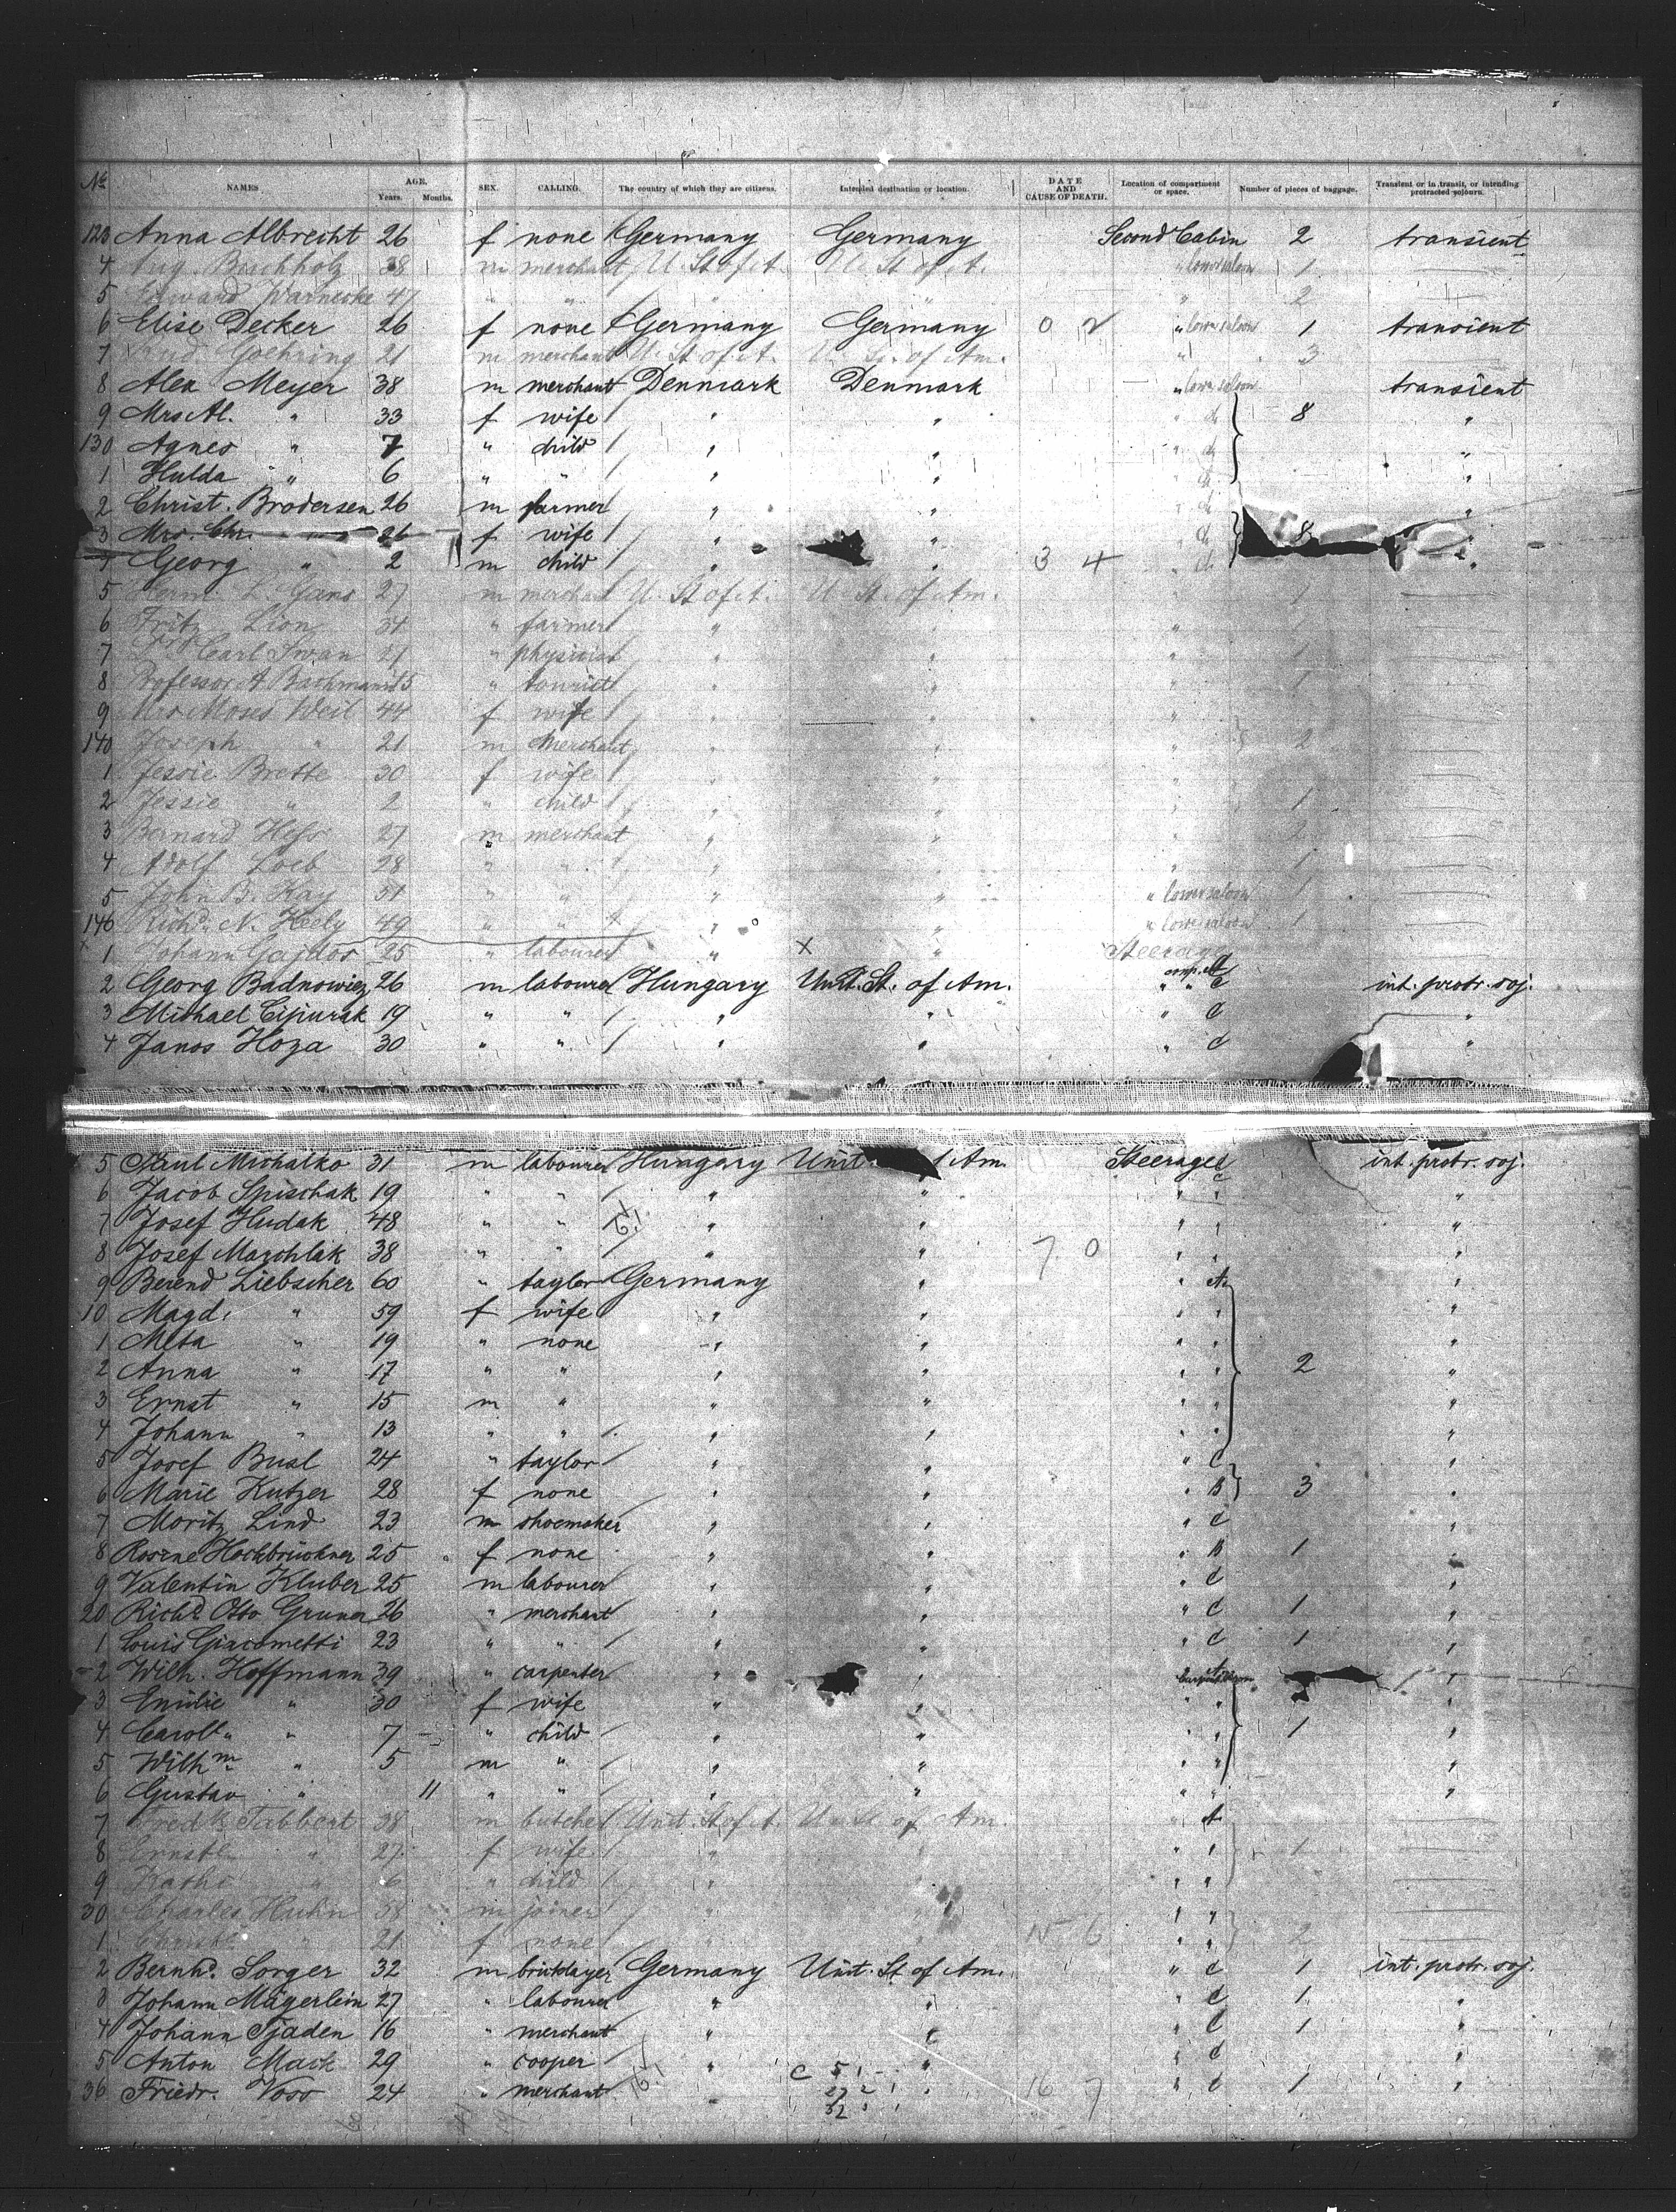 No. NAMES AGE. Years. Months. SEX. CALLING. The country of which they are citizens. Intended destination or location. DATE AND CAUSE OF DEATH. Location of compartment or space. Number of pieces of baggage. Transient or in transit, or intending protracted sojourn.
123 Anna Albrecht 26 f none Germany Germany Second Cabin 2 transient
4 Aug. Buchholz 38 m merchant U. St. of A. U. St. of A. " lower saloon 1
5 Edward Warnecke 47 " " " " " 2
6 Elise Decker 26 f none Germany Germany 0 2 " lower saloon 1 transient
7 Rud. Goehring 21 m merchant U. St. of A. U. St. of Am. " 3
8 Alex Meyer 38 m merchant Denmark Denmark " lower saloon transient
9 Mrs Al. " 33 f wife " " " d. 8 "
130 Agnes " 7 " child " " " d. "
1 Hulda " 6 " " " " " d. "
2 Christ. Brodersen 26 m farmer " " " d. "
3 Mrs. Chr. 26 f wife " " " d. 8 "
4 Georg " 2 m child " " 3 4 " d. "
5 Herm. L. Gans 27 m merchant U. St. of A. U. St. of Am. 1
6 Fritz Lion 34 " farmer " " "
7 Carl Swan 27 " " " " 1
8 Professor A. Bachmann " tourist " " "
9 Mrs Moses Weil 44 f wife " " "
140 Joseph " 21 m merchant " " " 2
1 Jessie Brette 30 f wife " " "
2 Jessie " 2 " child " " " 1
3 Bernard Hess 27 m merchant " " "
4 Adolf Loeb 28 " " " " " 1
5 John B. Kay 31 " " " " " lower saloon 1
146 Richd. N. Heely 49 " " " " " lower saloon 1
1 Johann Gajdos 25 " labourer " X " Steerage
2 Georg Badnowiez 26 m labourer Hungary Unit. St. of Am. " " C int. protr. soj.
3 Michael Cipiurak 19 " " " " " C "
4 Janos Hoza 30 " " " " " C "
5 Paul Michalko 31 m labourer Hungary Unit. Am. Steerage C int. protr. soj.
6 Jacob Spischak 19 " " " " " " "
7 Josef Hudak 48 " " " " " " "
8 Josef Marchlak 38 " " " " 7 0 " " "
9 Berend Liebscher 60 " taylor Germany " " A. "
10 Magd. " 59 f wife " " " " "
1 Meta " 19 " none " " " " "
2 Anna " 17 " " " " " " 2 "
3 Ernst " 15 m " " " " " "
4 Johann " 13 " " " " " " "
5 Josef Busl 24 " taylor " " " C "
6 Marie Kutzer 28 f none " " " B 3 "
7 Moritz Lind 23 m shoemaker " " " C "
8 Rosine Hochbrückner 25 f none " " " B 1 "
9 Valentin Kluber 25 m labourer " " " C "
20 Richd. Otto Gruner 26 " merchant " " " C 1 "
1 Louis Giacometti 23 " " " " " C 1 "
2 Wilh. Hoffmann 39 " carpenter " " A "
3 Emilie " 30 f wife " " " " "
4 Carol. " 7 " child " " " " 1 "
5 Wilhm. " 5 m " " " " " "
6 Gustav " 11 " " " " " " "
7 Fredk. Tabbert 38 m butcher Unit. St. of A. Un. St. of Am. " A
8 Ernst. " 27 f wife " " " 1
9 " 6 " child " " "
30 Charles Huhn 58 m joiner " " "
1 " 21 f none 6 " " 2
2 Bernhd. Sorger 32 m bricklayer Germany Unit. St. of Am. " C 1 int. protr. soj.
3 Johann Mägerlein 27 " labourer " " " C 1 "
4 Johann Tjaden 16 " merchant " " " C 1 "
5 Anton Mack 29 " cooper " " " C "
36 Friedr. Voss 24 " merchant " " 16 7 " C 1 "